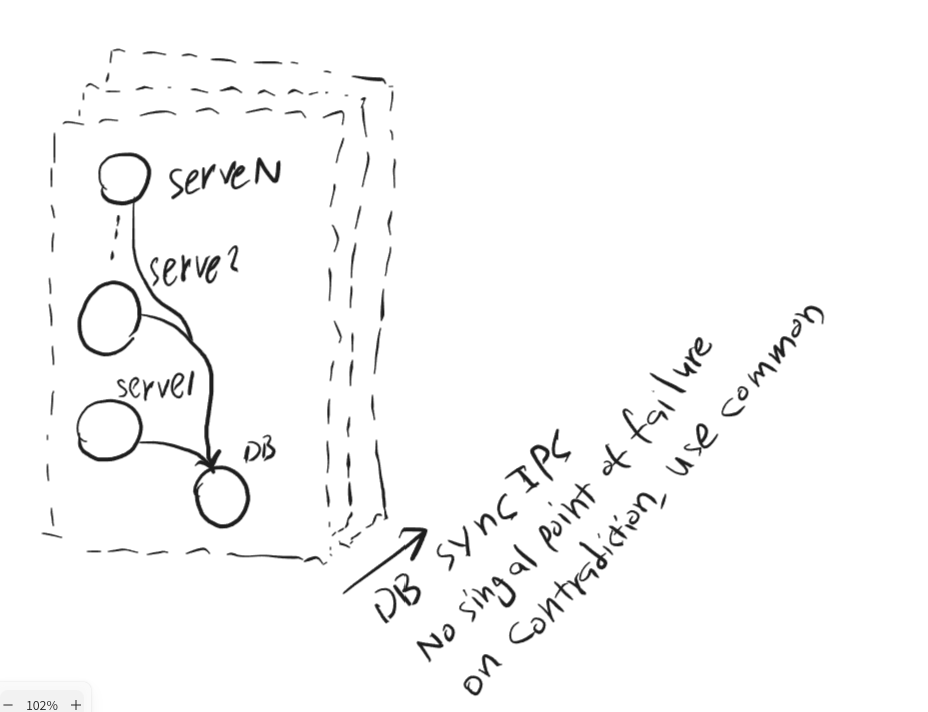 serveN
serve2
serve1
DB
DB sync IPC
No singal point of failure
on contradiction, use common
− 102% +